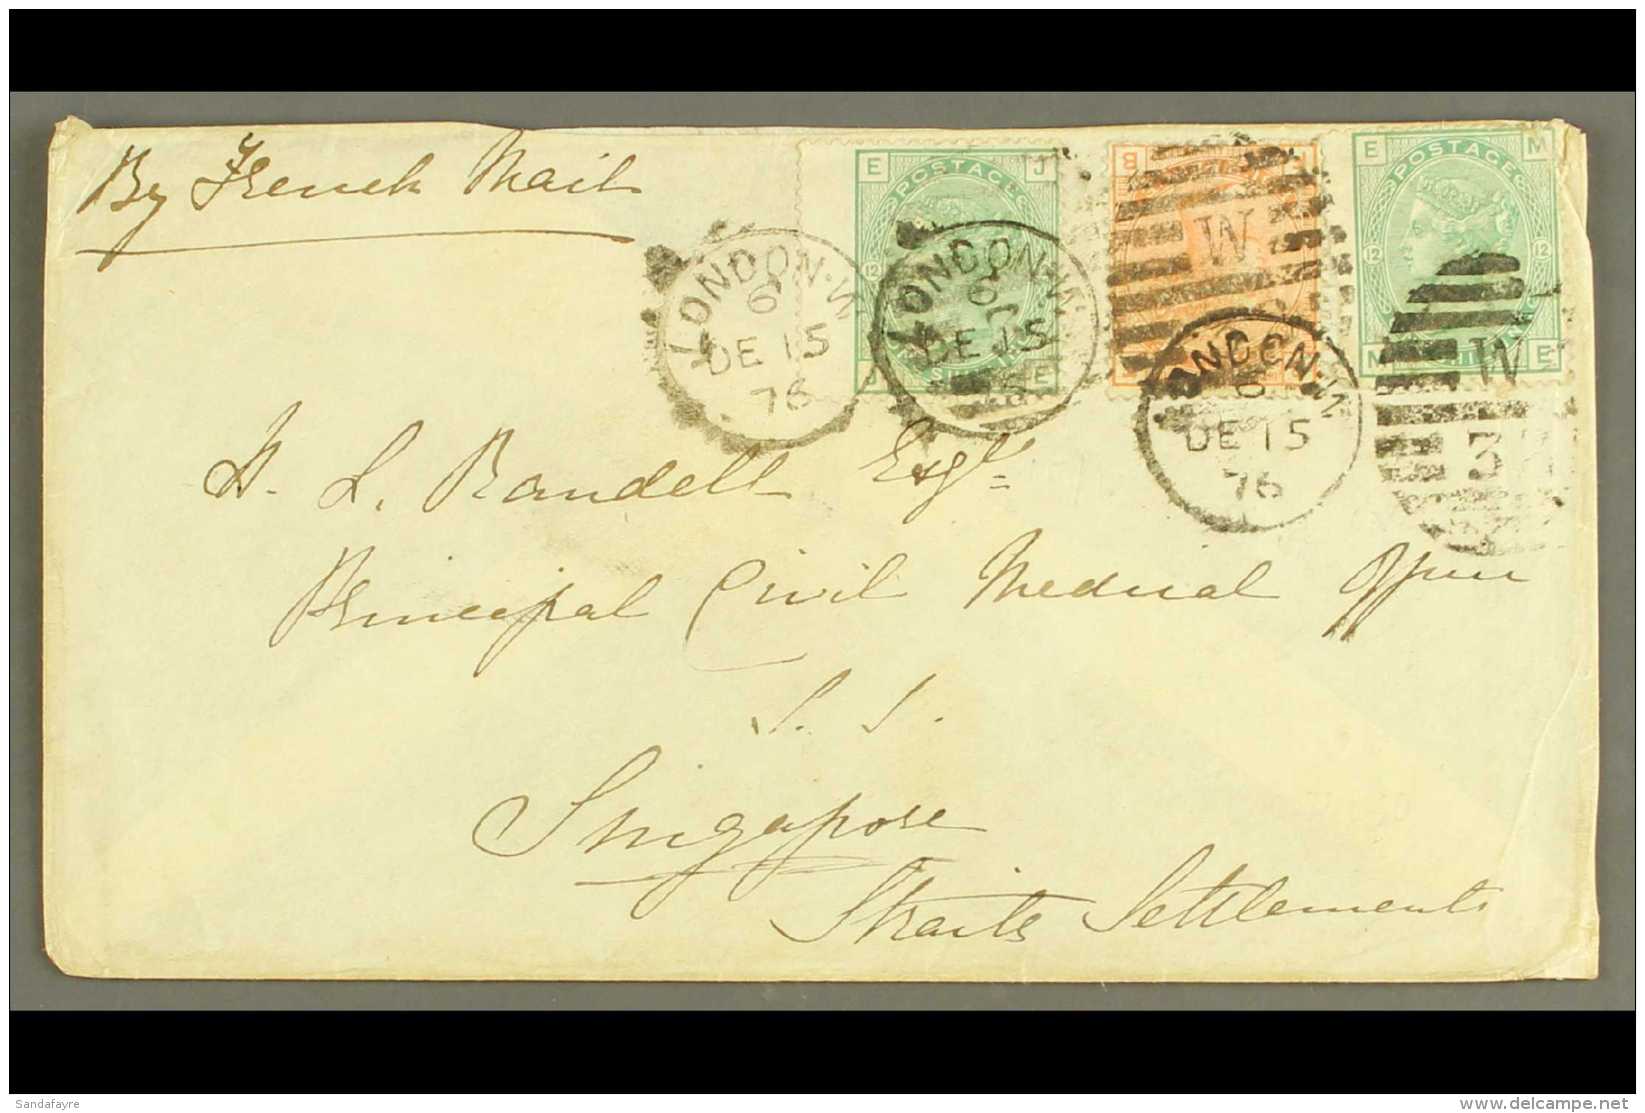 By French Mail
E POSTAGE J
12
J SIX E
B
E POSTAGE M
12 12
M E
LONDON·W
6
DE 15
76
LONDON·W
6
DE 15
76
W
LONDON·W
6
DE 15
76
W
3
H. L. Randell Esqr.
Principal Civil Medical Officer
S. S.
Singapore
Straits Settlements
Sandafayre
delcampe.net